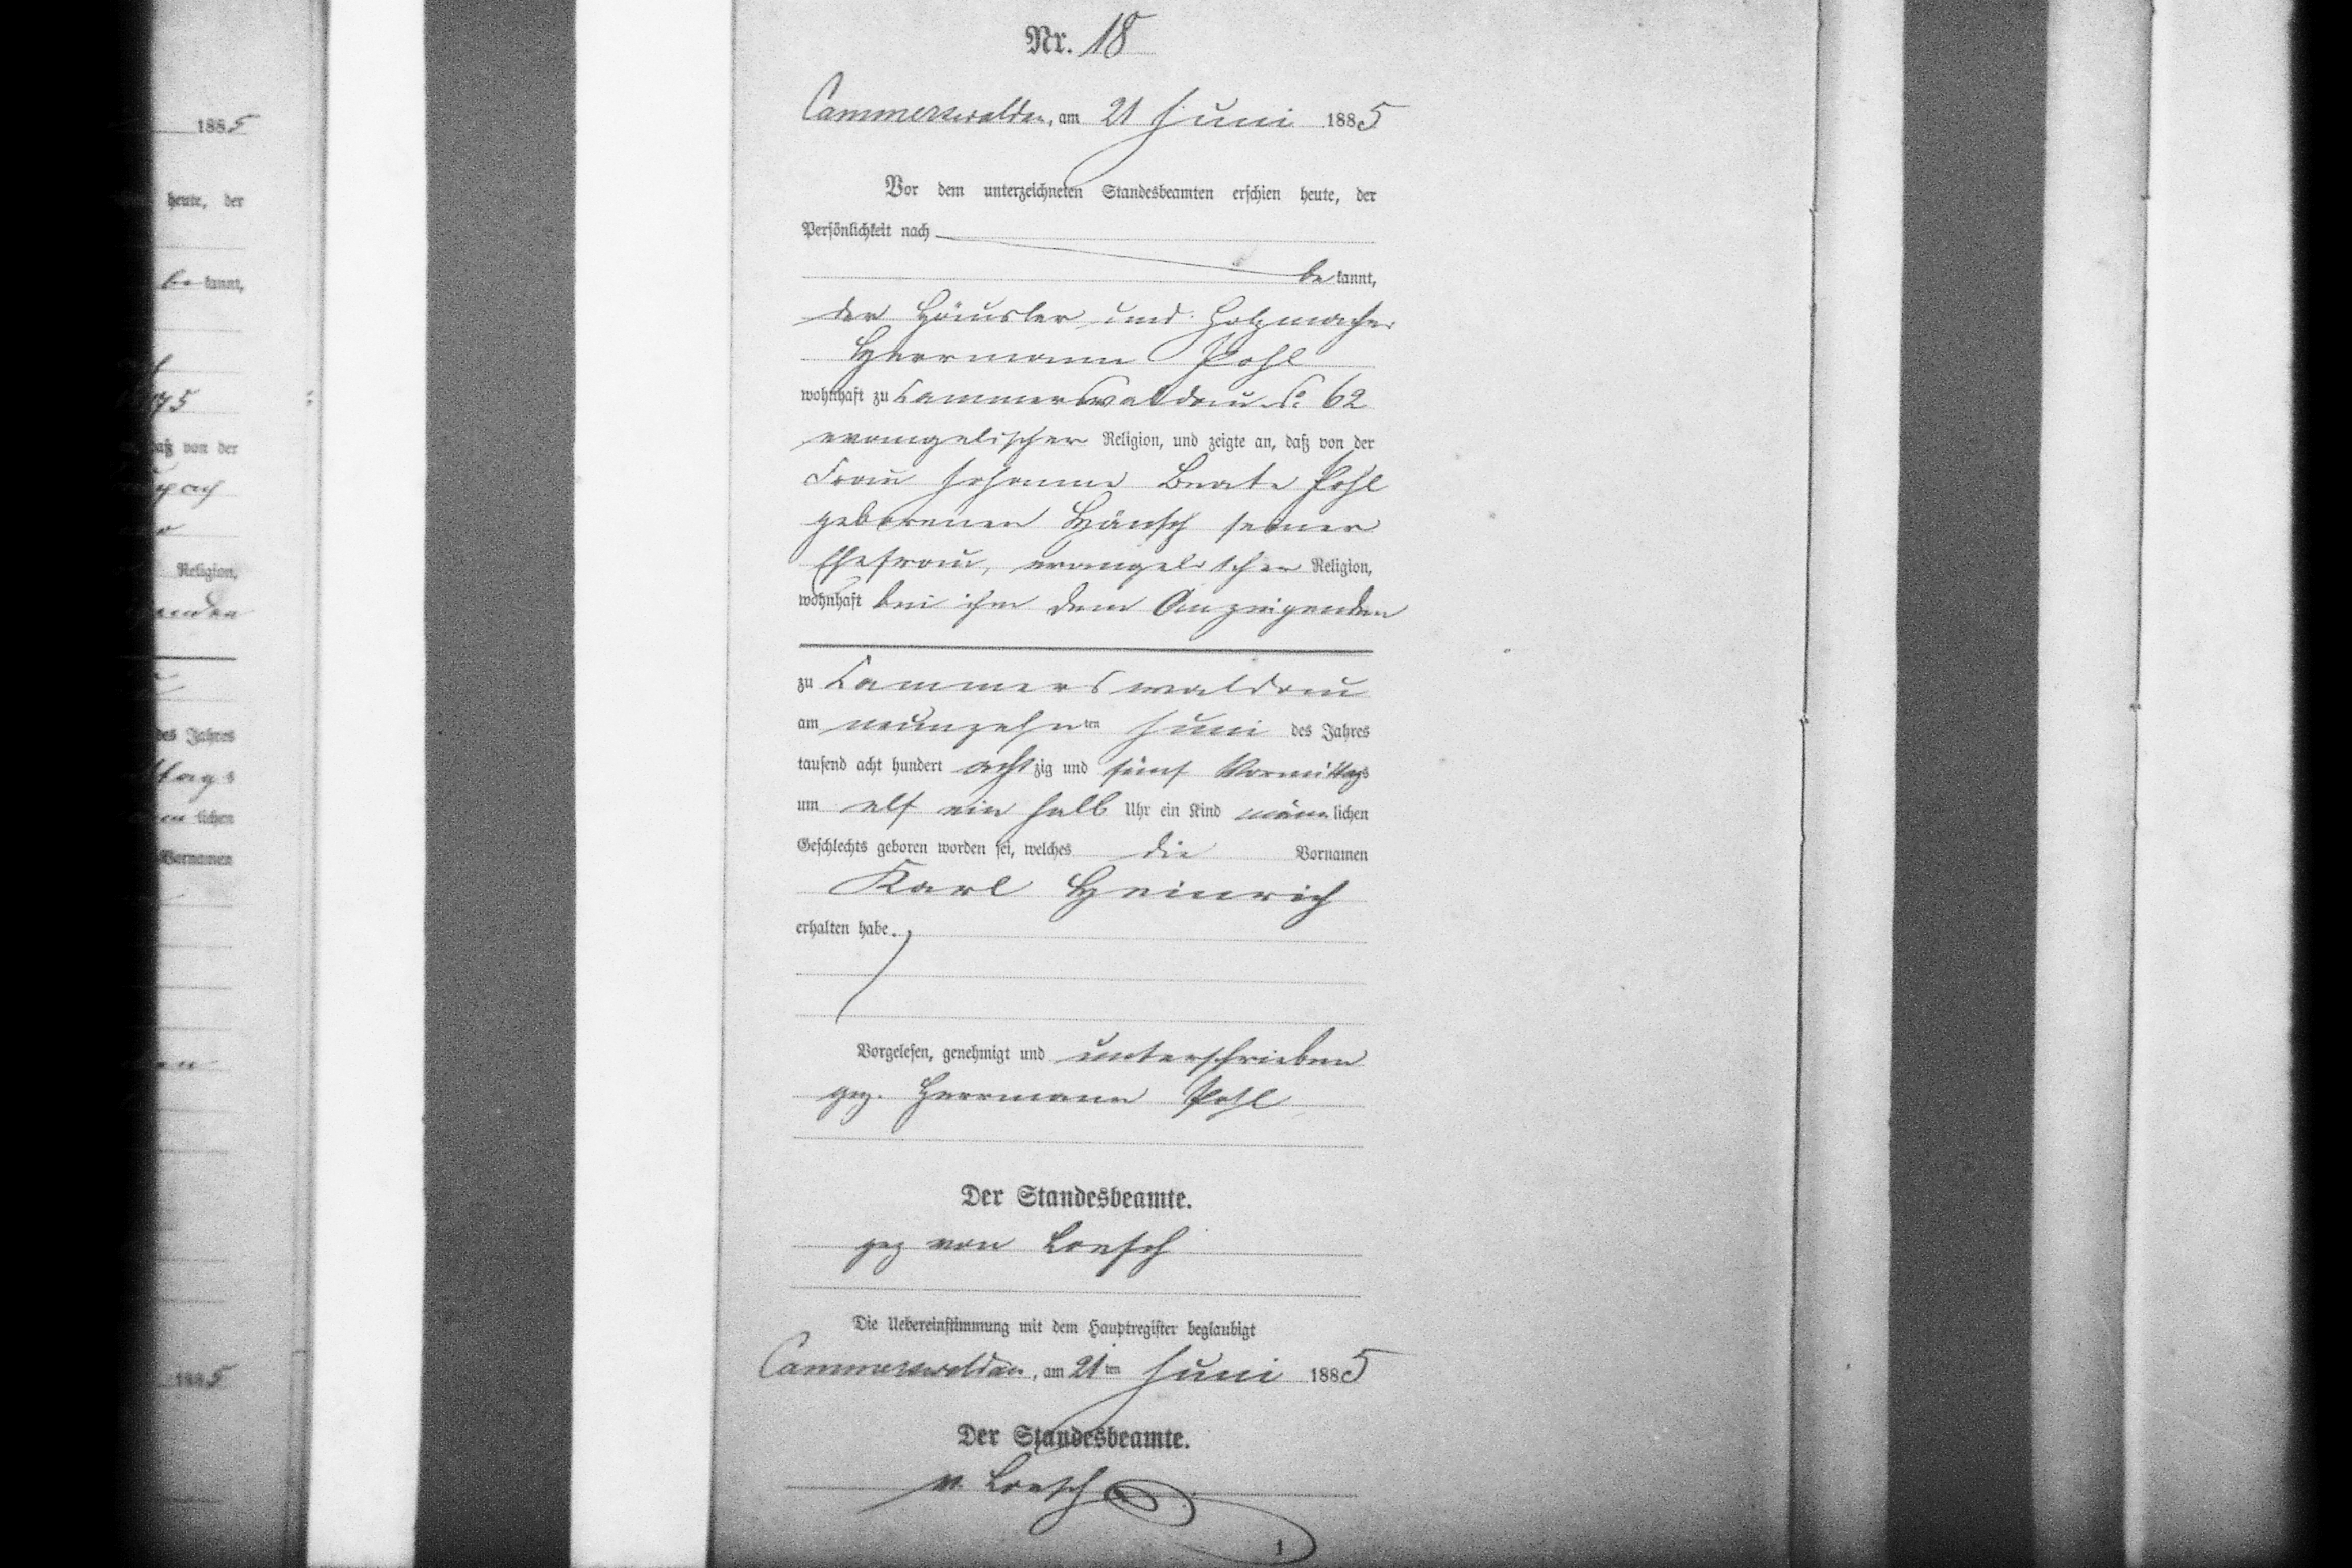 1885
heute, der
be kannt,
75
daß von der
Religion,
des Jahres
ttags
lichen
Vornamen
1885
Nr. 18
Cammerswaldau, am 21 Juni 1885
Vor dem unterzeichneten Standesbeamten erschien heute, der
Persönlichkeit nach
be kannt,
der Häusler und Holzmacher
Herrmann Pohl
wohnhaft zu Cammerswaldau No 62
evangelischer Religion, und zeigte an, daß von der
Frau Johanne Beate Pohl
geborenen Hänsch seiner
Ehefrau, evangelischer Religion,
wohnhaft bei ihm dem Anzeigenden
zu Cammerswaldau
am neunzehnten Juni des Jahres
tausend acht hundert achtzig und fünf Vormittags
um elf ein halb Uhr ein Kind männlichen
Geschlechts geboren worden sei, welches die Vornamen
Karl Heinrich
erhalten habe.
Vorgelesen, genehmigt und unterschrieben
gez. Herrmann Pohl
Der Standesbeamte.
gez von Loesch
Die Uebereinstimmung mit dem Hauptregister beglaubigt
Cammerswaldau, am 21ten Juni 1885
Der Standesbeamte.
v. Loesch
1